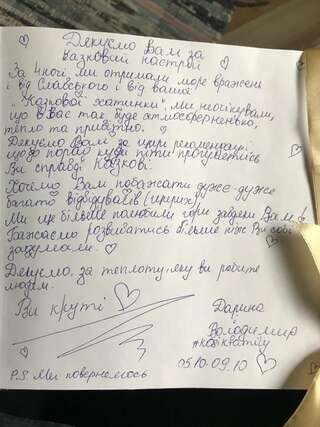 Дякуємо Вам за
казковий настрій
За 4 ночі ми отримали море вражень
і від Славського і від вашої
"Казкової хатинки", ми неочікували,
що в Вас так буде атмосферненько,
тепло та привітно.
Дякуємо Вам за щирі рекомендації
щодо порад куди піти прогулятись
Ви справді казкові.
Хочемо Вам побажати дуже-дуже
багато відвідувачів (щирих)
Ми ще більше полюбили гори завдяки Вам
Бажаємо розвиватись більше ніж Ви собі
задумали.
Дякуємо, за теплоту яку ви робите
людям.
Ви круті
Дарина
Володимир
05.10-09.10
P.S Ми повернемось